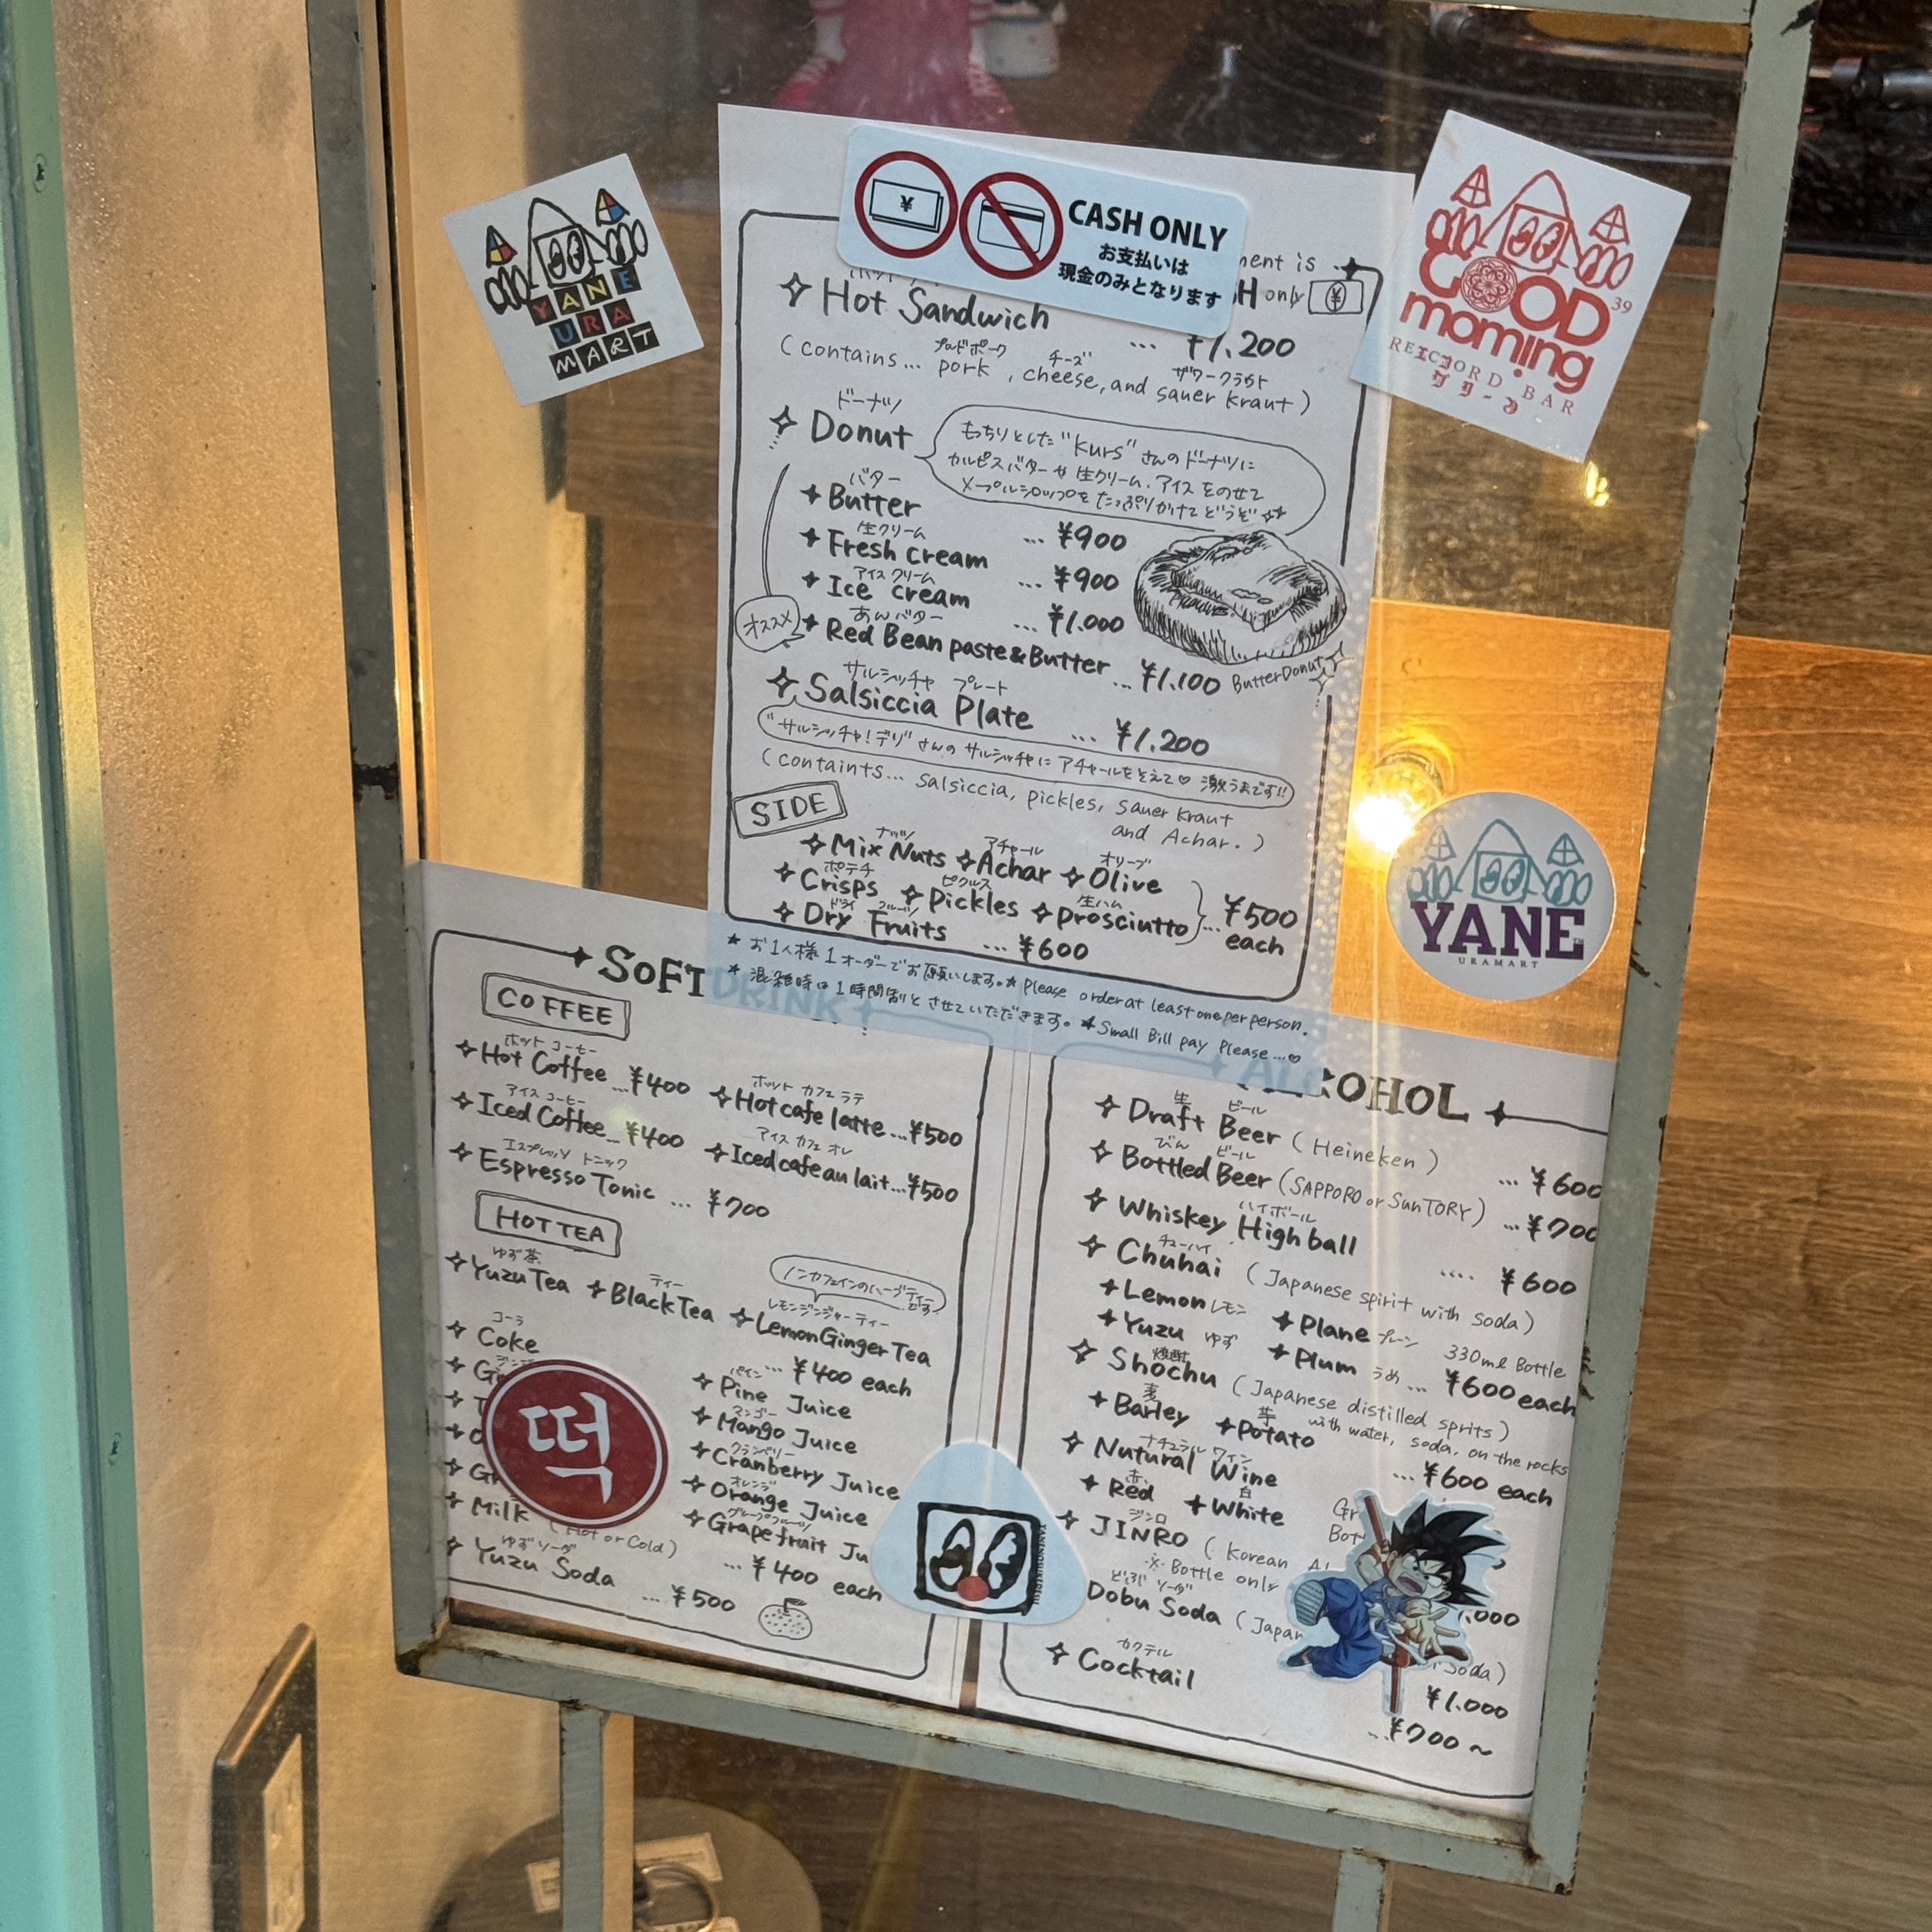 YANE
URA
MART
CASH ONLY
お支払いは
現金のみとなります
ment is
H only
GOOD
morning
39
RECORD BAR
✧ Hot Sandwich ... ¥1.200
プルドポーク チーズ ザワークラウト
(contains... pork , cheese, and sauer kraut)
ドーナツ
✧ Donut
もっちりとした"Kurs"さんのドーナツに
カルピスバターや生クリーム、アイスをのせて
メープルシロップをたっぷりかけてどうぞ
バター
✦ Butter ... ¥900
生クリーム
✦ Fresh cream ... ¥900
アイス クリーム
✦ Ice cream ... ¥1.000
オススメ
あんバター
✦ Red Bean paste&Butter ... ¥1.100
ButterDonut
サルシッチャ プレート
✧ Salsiccia Plate ... ¥1.200
"サルシッチャ!デリ"さんの サルシッチャに アチャールをそえて♡ 激うまです!!
(containts... salsiccia, pickles, sauer kraut
and Achar.)
SIDE
ナッツ アチャール オリーブ
✧ Mix Nuts ✧ Achar ✧ Olive
ポテチ ピクルス 生ハム
✧ Crisps ✧ Pickles ✧ Prosciutto ... ¥500
each
ドライ フルーツ
✧ Dry Fruits ... ¥600
★ お1人様1オーダーでお願いします。★ Please order at least one per person.
★ 混雑時は1時間割とさせていただきます。★ Small Bill pay Please...♡
YANE
URAMART
SOFT DRINK
COFFEE
ホット コーヒー
✧ Hot Coffee ... ¥400
ホット カフェ ラテ
✧ Hot cafe latte ... ¥500
アイス コーヒー
✧ Iced Coffee ... ¥400
アイス カフェ オレ
✧ Iced cafe au lait ... ¥500
エスプレッソ トニック
✧ Espresso Tonic ... ¥700
HOT TEA
ノンカフェインのハーブティーです
ゆず茶 ティー レモンジンジャーティー
✦ Yuzu Tea ✦ Black Tea ✧ Lemon Ginger Tea
... ¥400 each
コーラ
✦ Coke
떡
✦ Milk (Hot or Cold)
パイン
✧ Pine Juice
マンゴー
✧ Mango Juice
クランベリー
✧ Cranberry Juice
オレンジ
✧ Orange Juice
グレープフルーツ
✧ Grapefruit Ju
... ¥400 each
ゆず ソーダ
✦ Yuzu Soda ... ¥500
ALCOHOL
生 ビール
✧ Draft Beer (Heineken) ... ¥600
びん ビール
✧ Bottled Beer (SAPPORO or SunTORY) ... ¥700
ハイボール
✧ Whiskey Highball .... ¥600
チューハイ
✧ Chuhai (Japanese spirit with soda)
✦ Lemon レモン ✦ Plane プレーン 330ml Bottle
✦ Yuzu ゆず ✦ Plum うめ ... ¥600 each
焼酎
✧ Shochu (Japanese distilled sprits)
麦 芋
✦ Barley ✦ Potato with water, soda, on the rocks
... ¥600 each
ナチュラル ワイン
✧ Nutural Wine
赤 白
✦ Red ✦ White
ジンロ
✧ JINRO (Korean
※ Bottle only
.000
どぶ ソーダ
Dobu Soda (Japan
Soda)
¥1.000
カクテル
✧ Cocktail ... ¥700 〜